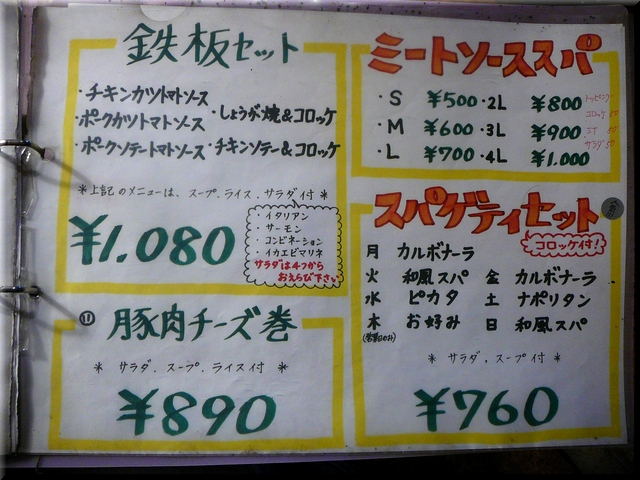 鉄板セット
・チキンカツトマトソース
・ポークカツトマトソース ・しょうが焼&コロッケ
・ポークソテートマトソース・チキンソテー&コロッケ
*上記のメニューは、スープ、ライス、サラダ付*
¥1.080
・イタリアン
・サーモン
・コンビネーション
・イカエビマリネ
サラダは4つから
おえらび下さい
⑪ 豚肉チーズ巻
* サラダ、スープ、ライス付 *
¥890
ミートソーススパ
・S ¥500・2L ¥800
・M ¥600・3L ¥900
・L ¥700・4L ¥1.000
トッピング
コロッケ 50
サラダ50
スパゲティセット
コロッケ付!
月 カルボナーラ
火 和風スパ 金 カルボナーラ
水 ピカタ 土 ナポリタン
木 お好み 日 和風スパ
(営業日のみ)
* サラダ、スープ付 *
¥760